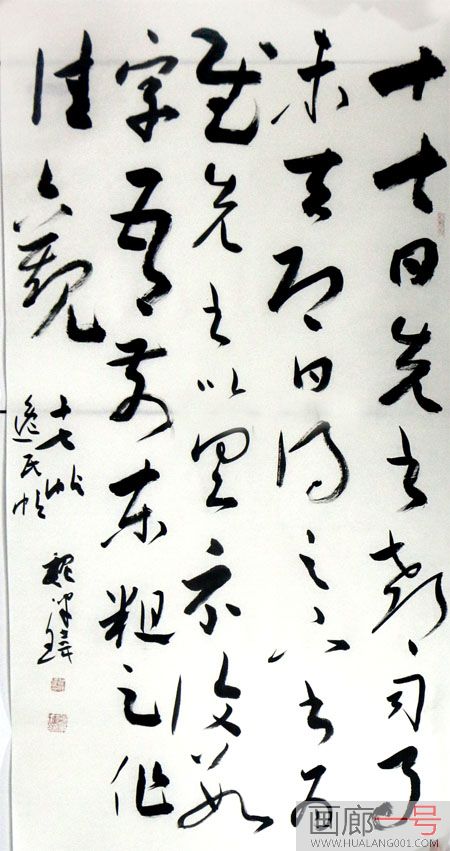 十七日先書郗司馬
未去即日得足下書為
慰先書以具示復數
字吾前東粗足作
佳觀
十七帖
逸民帖
画廊一号
WWW.HUALANG001.COM